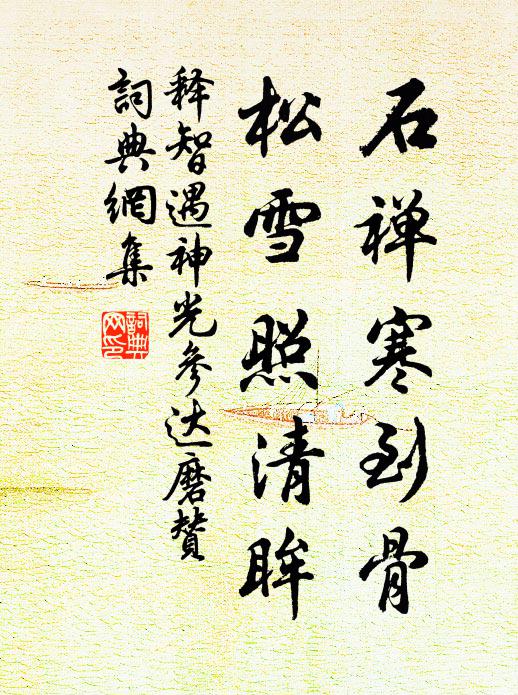 石禅寒到骨
松雪照清眸
释智遇神光参达磨赞
詞典網集
詞典網印